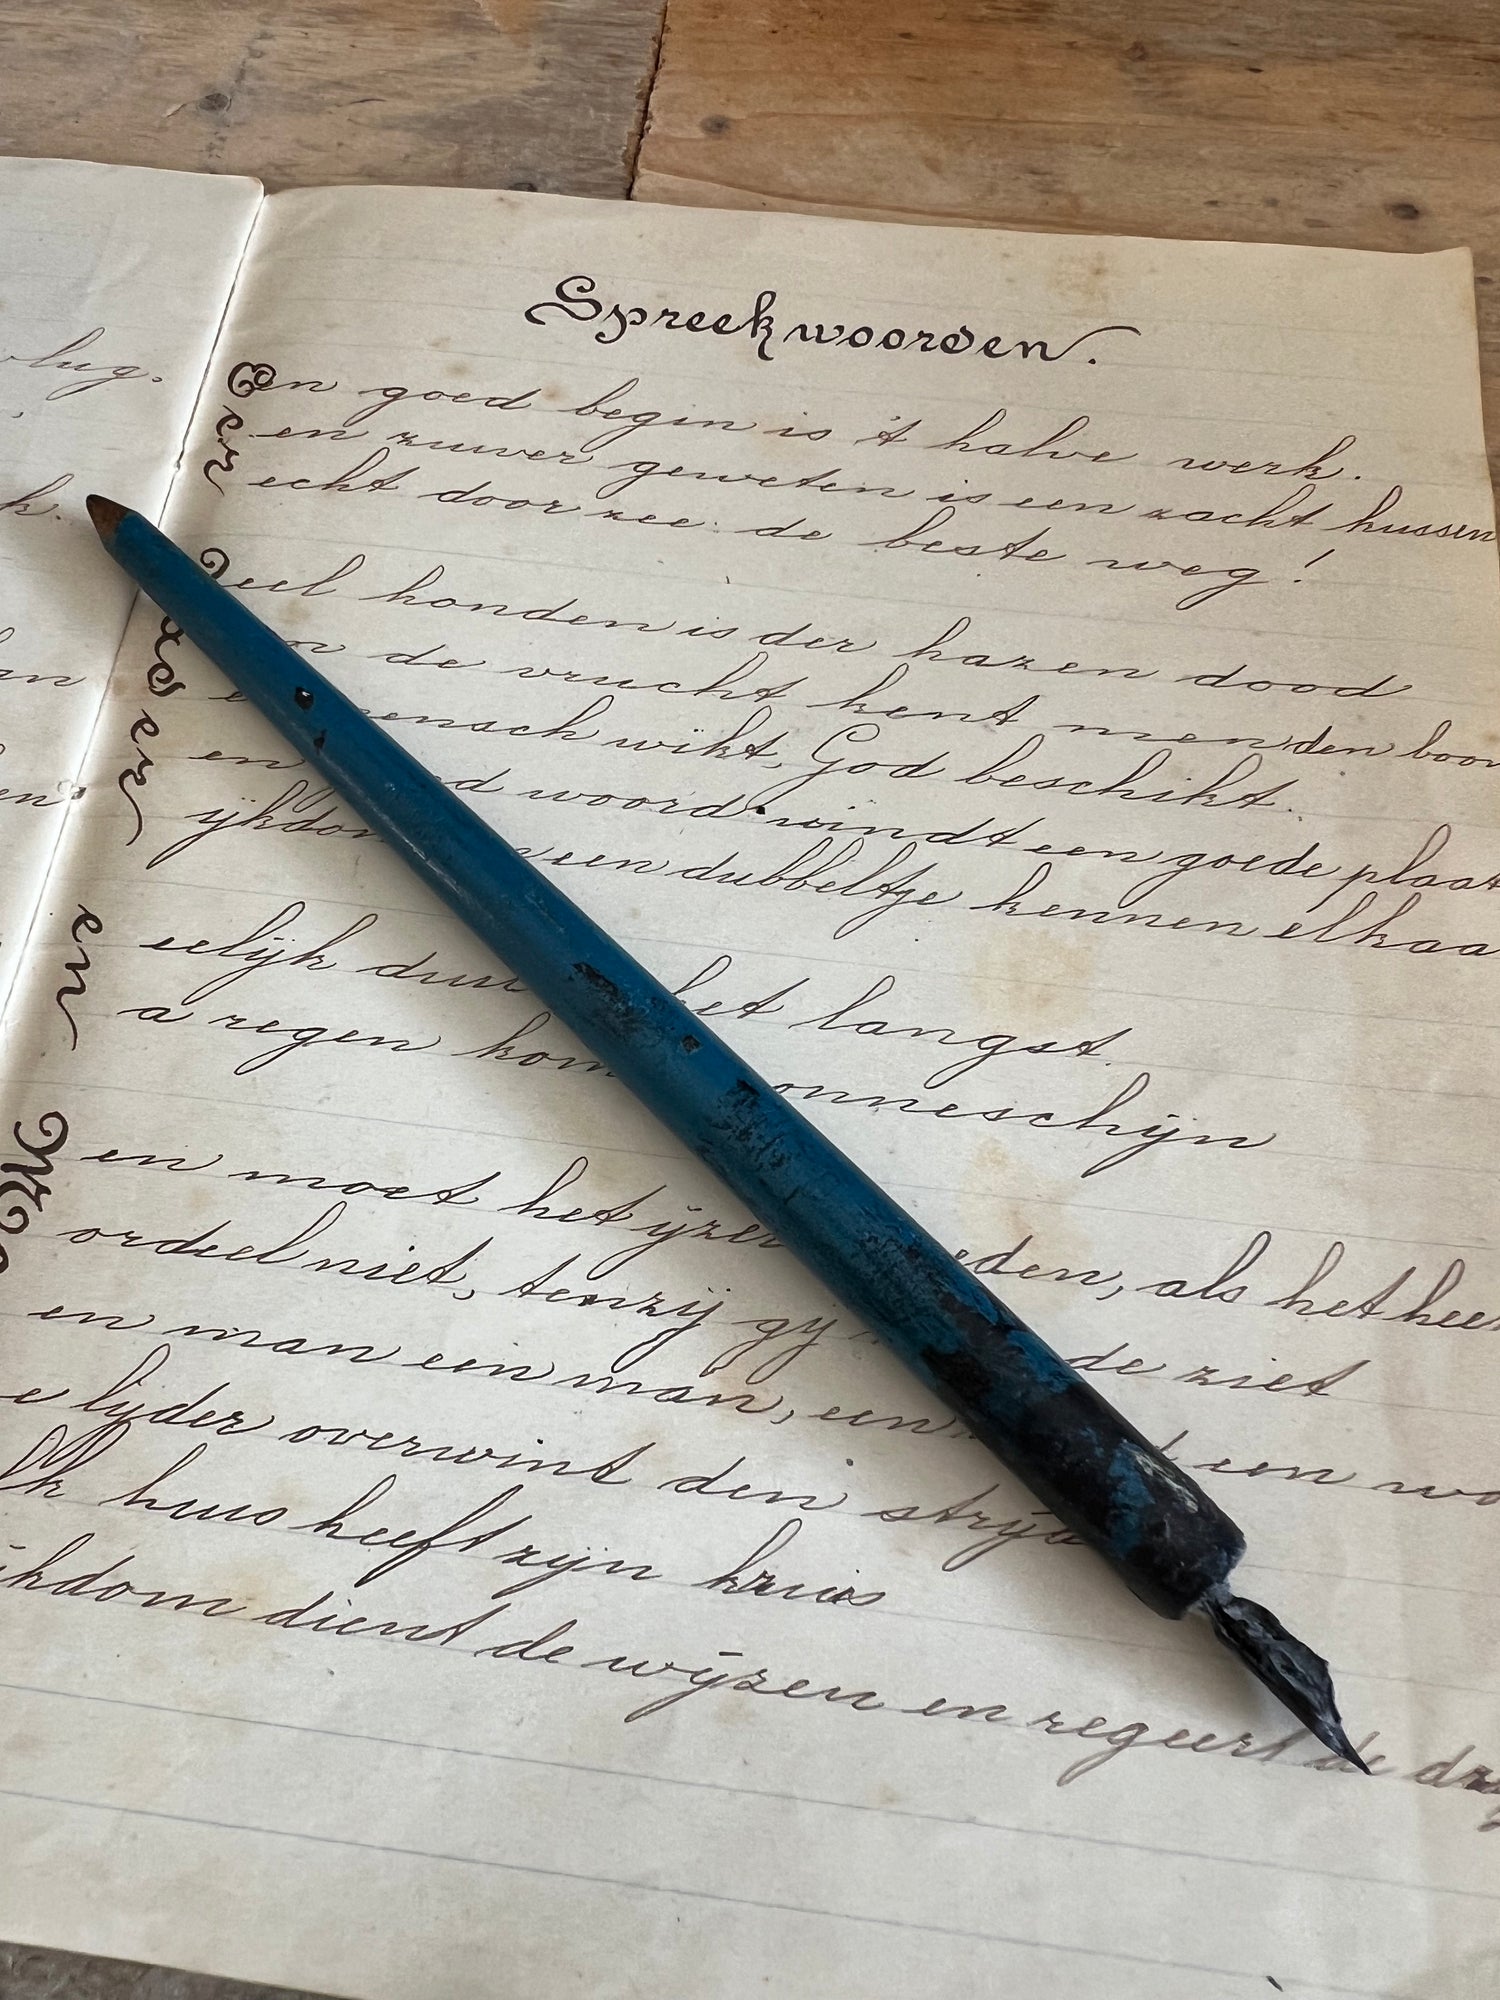 lug.
k.
an
en
Spreekwoorden.
Een goed begin is 't halve werk.
Een zuiver geweten is een zacht kussen
Recht door zee: de beste weg!
Veel honden is der hazen dood
Aan de vrucht kent men den boom
De mensch wikt, God beschikt.
Een goed woord vindt een goede plaat
Rijkdom een dubbeltje kennen elkaa
Eerlijk duurt het langst.
Na regen kom onneschijn
Men moet het ijzer eden, als het hee
Oordeel niet, tenzij gij de ziet
Een man een man, een een wo
De lijder overwint den strijd
Elk huis heeft zijn kruis
Rijkdom dient de wijzen en regeert de